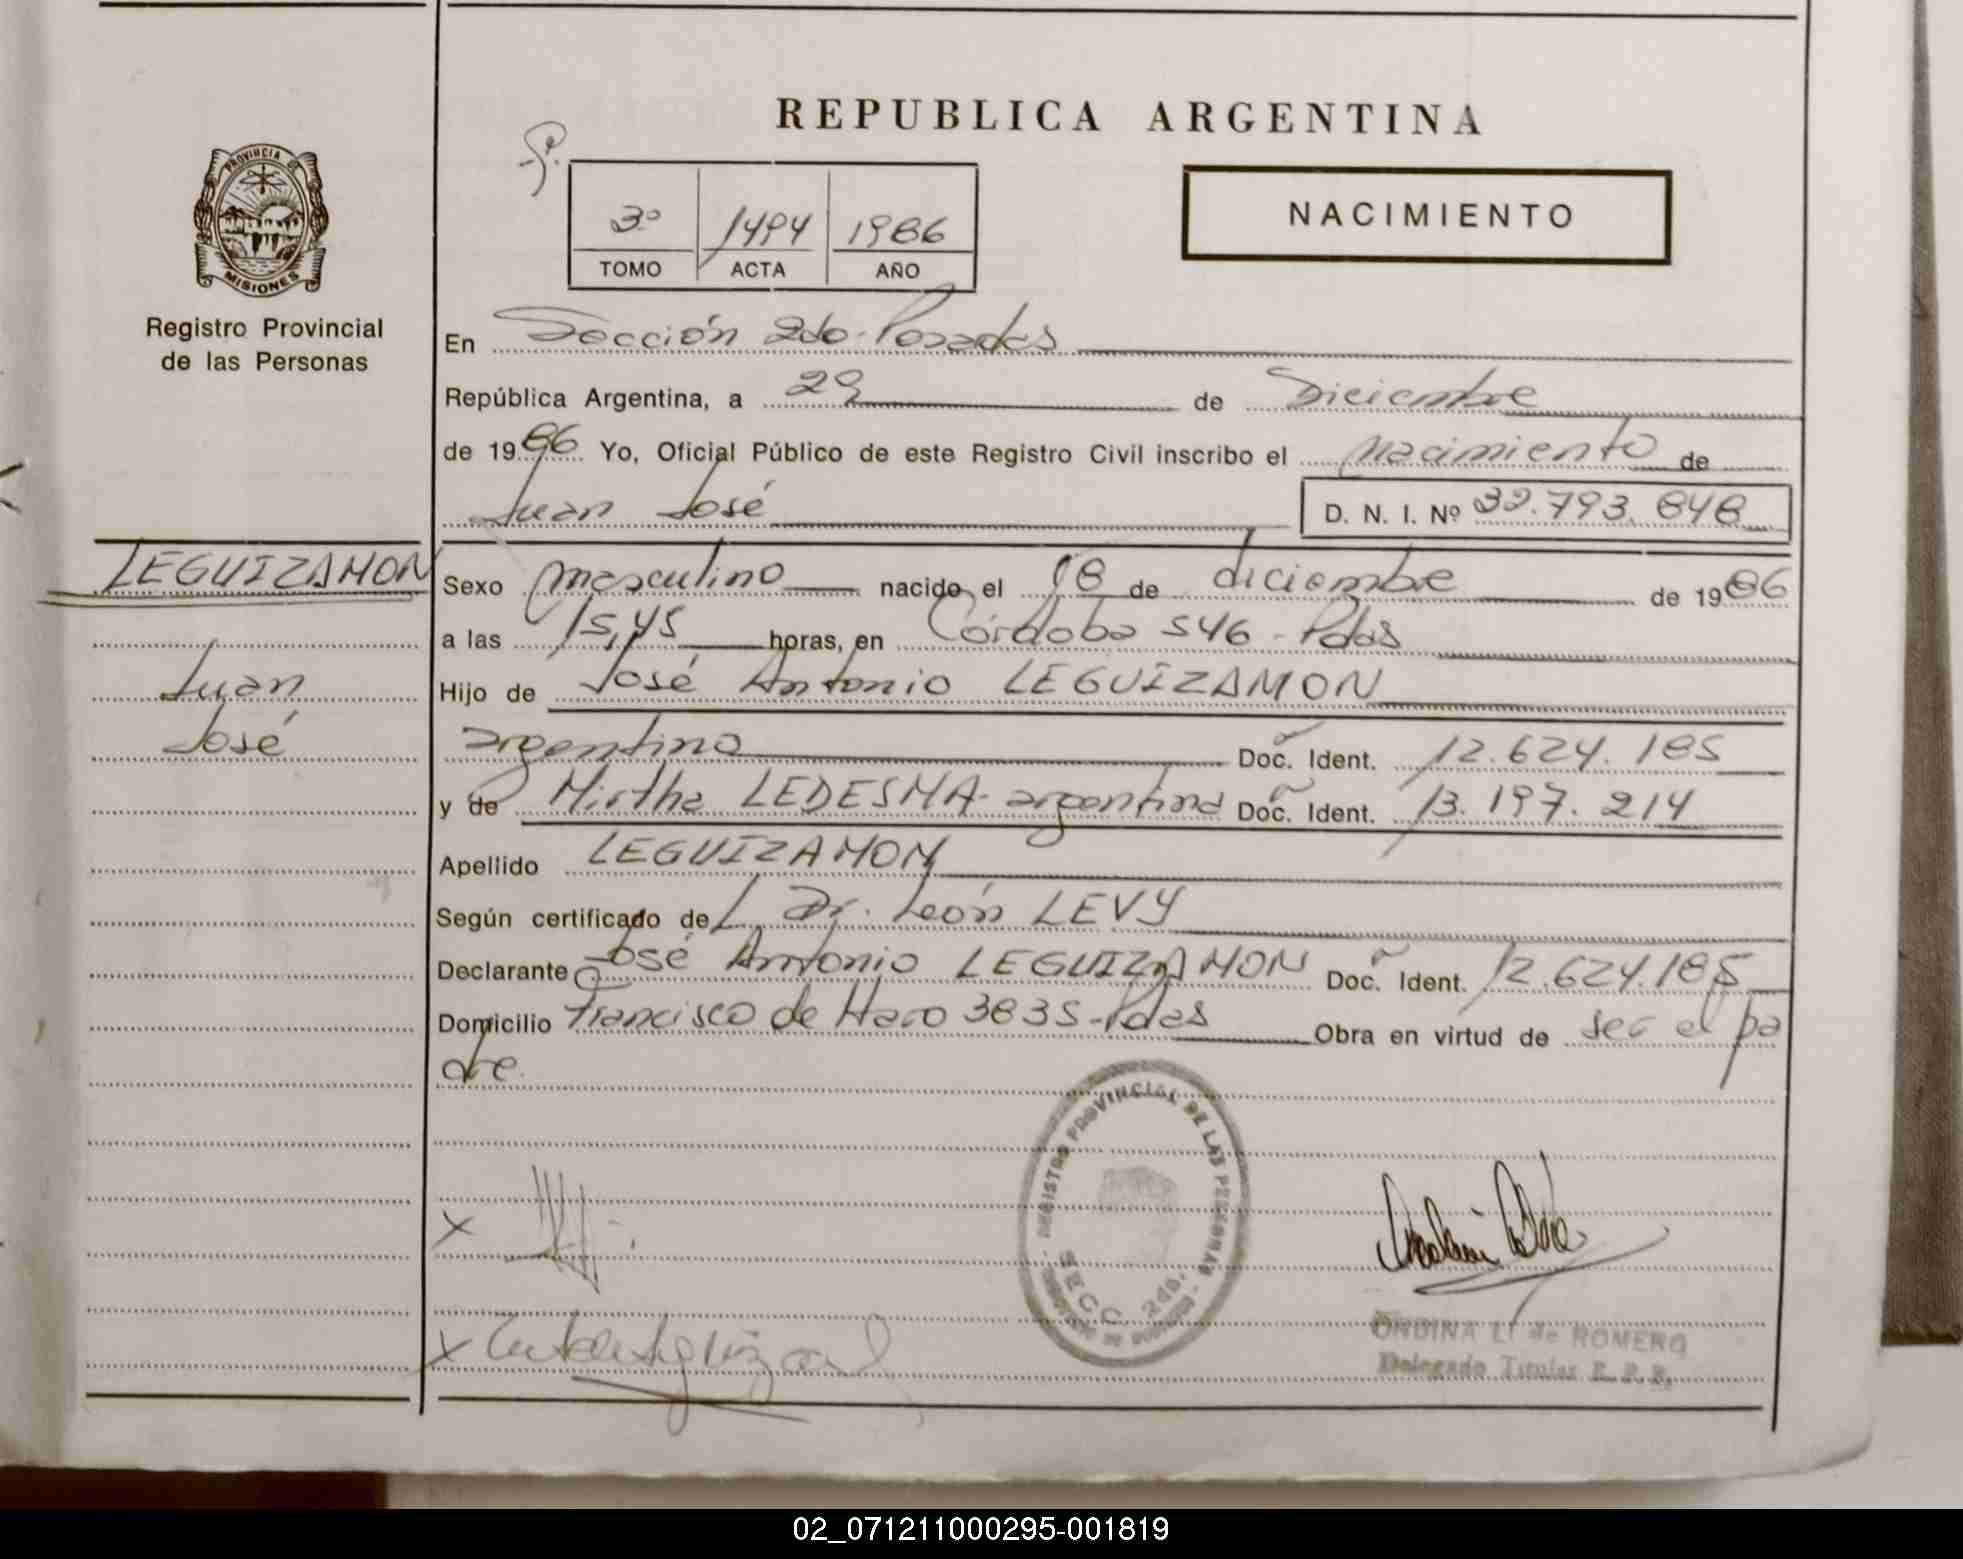 REPUBLICA ARGENTINA
PROVINCIA DE
MISIONES
Registro Provincial
de las Personas
3º 1494 1986
TOMO ACTA AÑO
NACIMIENTO
En Sección 2da. Posadas
República Argentina, a 29 de Diciembre
de 1986 Yo, Oficial Público de este Registro Civil inscribo el nacimiento de
Juan José D. N. I. Nº 32.793.848
LEGUIZAMON
Juan
José
Sexo masculino nacido el 18 de diciembre de 1986
a las 15,45 horas, en Córdoba 546 - Pdas
Hijo de José Antonio LEGUIZAMON
argentino Doc. Ident. 12.624.185
y de Mirtha LEDESMA - argentina Doc. Ident. 13.197.214
Apellido LEGUIZAMON
Según certificado de Dr. León LEVY
Declarante José Antonio LEGUIZAMON Doc. Ident. 12.624.185
Domicilio Francisco de Haro 3835 - Pdas Obra en virtud de ser el pa
dre.
REGISTRO PROVINCIAL DE LAS PERSONAS
SECC. 2da.
X
X
ONDINA L. de ROMERO
Delegado Titular R. P. P.
02_071211000295-001819